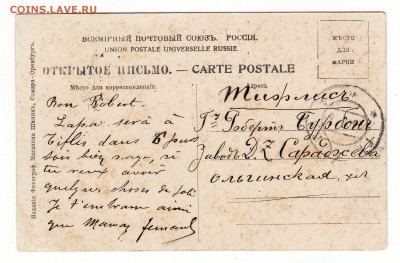 COINS.SU
COINS-LAVE.RU
ВСЕМІРНЫЙ ПОЧТОВЫЙ СОЮЗЪ. РОССІЯ.
UNION POSTALE UNIVERSELLE RUSSIE.
МѢСТО
ДЛЯ
МАРКИ
ОТКРЫТОЕ ПИСЬМО. — CARTE POSTALE
Мѣсто для корреспонденціи.
Адресъ.
Bon Robert.
Papa sera à
Tiflis dans 5 jours
sois bien sage, si
tu veux avoir
quelque choses de joli
Je t'embrasse ainsi
que Maman Fernand
Тифлисъ
Гну Робертъ Бурбонъ
Заводъ Д. Z. Сараджева
Ольгинская ул
Изданіе Фотограф. Магазина Шванкъ, Самара-Оренбургъ.